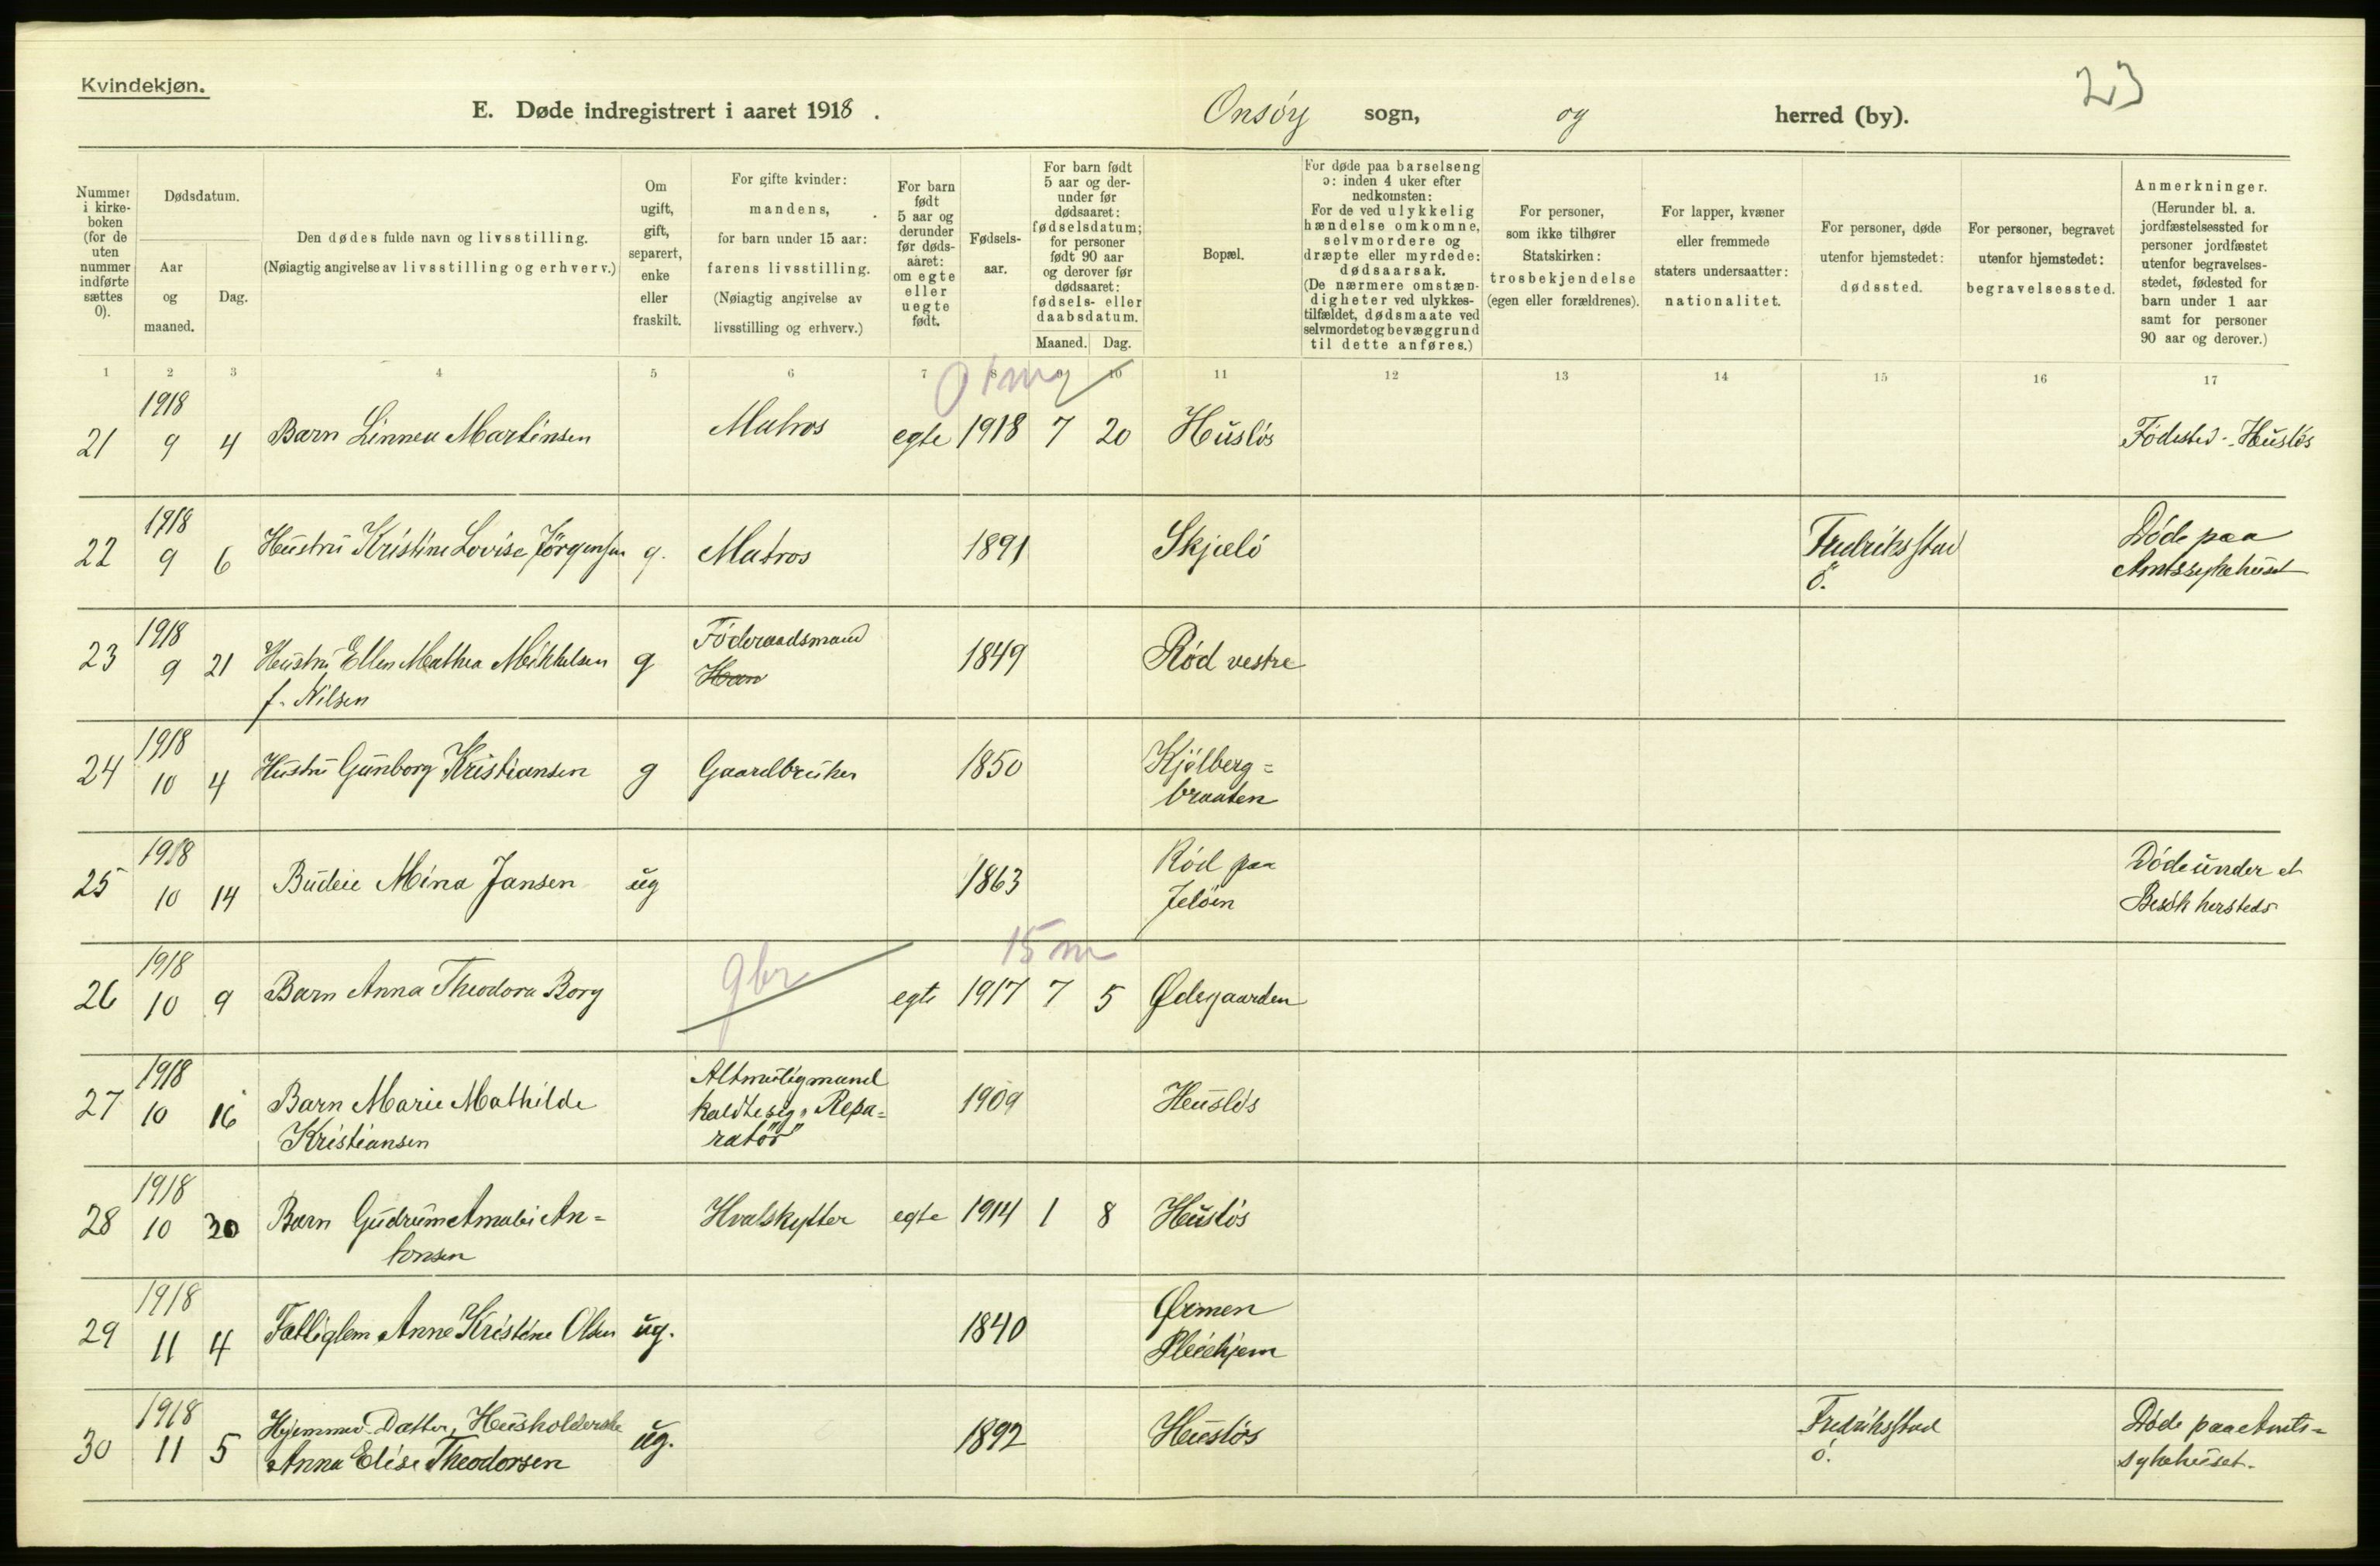 Kvindekjøn.
23
E. Døde indregistrert i aaret 1918 . Onsöy sogn, og herred (by).
Nummer i kirke-boken (for de uten nummer indførte sættes 0).
Dødsdatum.
Aar og maaned.
Dag.
Den dødes fulde navn og livsstilling.
(Nøiagtig angivelse av livsstilling og erhverv.)
Om ugift, gift, separert, enke eller fraskilt.
For gifte kvinder: mandens, for barn under 15 aar: farens livsstilling. (Nøiagtig angivelse av livsstilling og erhverv.)
For barn født 5 aar og derunder før døds-aaret: om egte eller uegte født.
Fødsels-aar.
For barn født 5 aar og der-under før dødsaaret: fødselsdatum; for personer født 90 aar og derover før dødsaaret: fødsels- eller daabsdatum.
Maaned. Dag.
Bopæl.
For døde paa barselseng ɔ: inden 4 uker efter nedkomsten: For de ved ulykkelig hændelse omkomne, selvmordere og dræpte eller myrdede: dødsaarsak. (De nærmere omstæn-digheter ved ulykkes-tilfældet, dødsmaate ved selvmordet og bevæggrund til dette anføres.)
For personer, som ikke tilhører Statskirken: trosbekjendelse (egen eller forældrenes).
For lapper, kvæner eller fremmede staters undersaatter: nationalitet.
For personer, døde utenfor hjemstedet: dødssted.
For personer, begravet utenfor hjemstedet: begravelsessted.
Anmerkninger. (Herunder bl. a. jordfæstelsessted for personer jordfæstet utenfor begravelses-stedet, fødested for barn under 1 aar samt for personer 90 aar og derover.)
1 2 3 4 5 6 7 8 9 10 11 12 13 14 15 16 17
1918
21 9 4 Barn Linnea Martinsen Matros egte 1918 7 20 Huslös Födested - Huslös
1918
22 9 6 Hustru Kristine Lovise Jörgensen g. Matros 1891 Skjælö Fredriksstad Döde paa
ö. Amtssykehuset
1918 Föderaadsmand
23 9 21 Hustru Ellen Mathea Mikkelsen g Han 1849 Röd vestre
f. Nilsen
1918
24 10 4 Hustru Gunborg Kristiansen g Gaardbruker 1850 Kjölberg=
braaten
1918 Röd paa Döde under et
25 10 14 Budeie Mina Jansen ug 1863 Jelöen Besök hersteds
1918 gbr 15 m
26 10 9 Barn Anna Theodora Borg egte 1917 7 5 Ødegaarden
1918 Altmuligmand
27 10 16 Barn Marie Mathilde kaldte sig "Repa= 1909 Huslös
Kristiansen ratör"
1918
28 10 30 Barn Gudrun Amalie An= Hvalskytter egte 1914 1 8 Huslös
tonsen
1918 Ørmen
29 11 4 Fattiglem Anne Kristine Olsen ug. 1840 Pleiehjem
1918 Hjemmev. Datter, Husholderske Fredriksstad Döde paa Amts=
30 11 5 Anna Elise Theodorsen ug. 1892 Huslös ö. sykehuset.